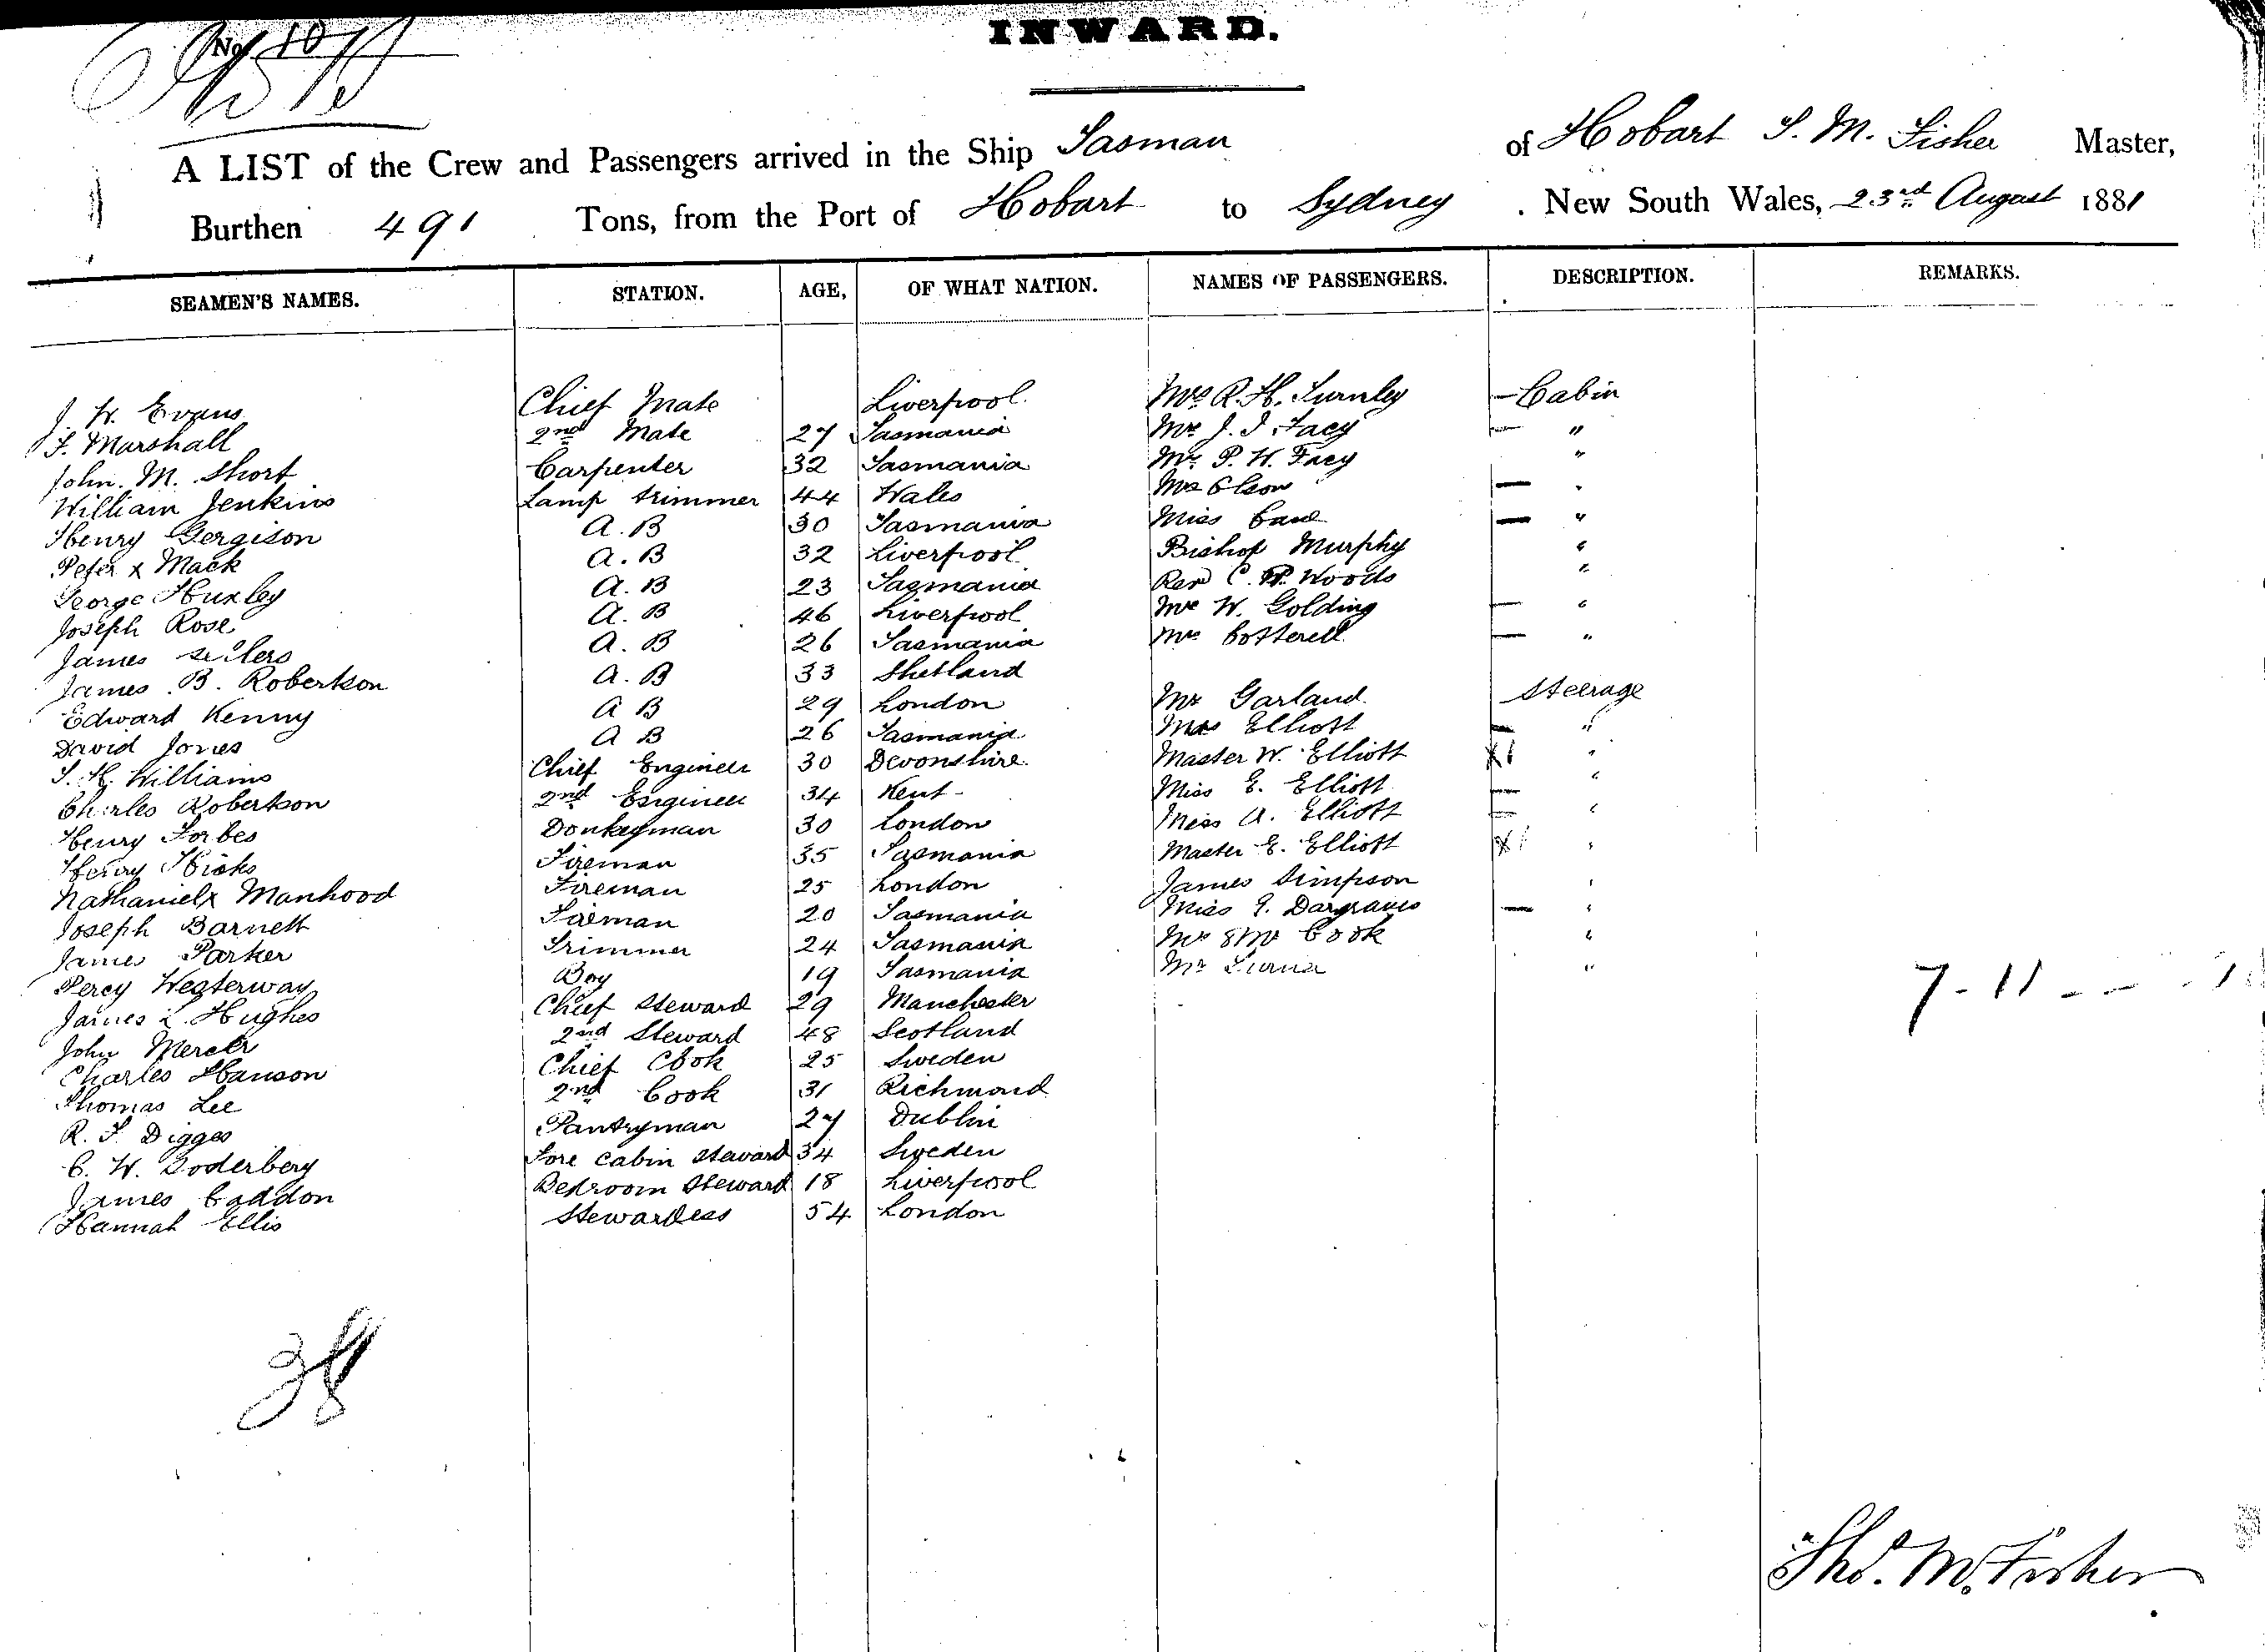 No. 10
INWARD.
A LIST of the Crew and Passengers arrived in the Ship Tasman of Hobart T. M. Fisher Master,
Burthen 491 Tons, from the Port of Hobart to Sydney . New South Wales, 23rd August 1881
SEAMEN'S NAMES. STATION. AGE, OF WHAT NATION. NAMES OF PASSENGERS. DESCRIPTION. REMARKS.
J. W. Evans Chief Mate Liverpool Mrs R. H. Cabin
T. Marshall 2nd Mate 27 Tasmania Mr J. I. Facy "
John. M. Short Carpenter 32 Tasmania Mr P. H. Facy "
William Jenkins Lamp trimmer 44 Wales Mrs Olson "
Henry Gergison A.B 30 Tasmania Miss "
Peter x Mack A.B 32 Liverpool Bishop Murphy "
George Huxley A.B 23 Tasmania Rev C. P. Woods "
Joseph Rose A.B 46 Liverpool W. Golding "
James A.B 26 Tasmania Mrs Cotterell "
James B. Robertson A.B 33 Shetland
Edward Kenny A B 29 London Mr Garland Steerage
David Jones A B 26 Tasmania Mrs Elliott "
T. H. Williams Chief Engineer 30 Devonshire Master W. Elliott "
Charles Robertson 2nd Engineer 34 Kent Miss E. Elliott "
Henry Forbes Donkeyman 30 London Miss A. Elliott "
Henry Hicks Fireman 35 Tasmania Master E. Elliott "
Nathaniel x Manhood Fireman 25 London James Simpson "
Joseph Barnett Fireman 20 Tasmania Miss Dargraves "
James Parker Trimmer 24 Tasmania Cook "
Percy Westerway Boy 19 Tasmania Mr "
James L. Hughes Chief Steward 29 Manchester
John Mercer 2nd Steward 48 Scotland
Charles Hanson Chief Cook 25 Sweden
Thomas Lee 2nd Cook 31 Richmond
R. T. Digges Pantryman 27 Dublin
C. W. Soderberg Fore Cabin Steward 34 Sweden
James Caddon Bedroom Steward 18 Liverpool
Hannah Ellis Stewardess 54 London
7 - 11
38
Thos. M. Fisher